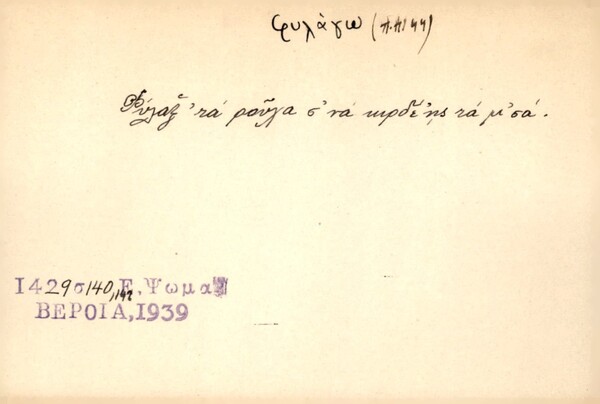 φυλάγω
Φύλαξ' τά ροῦχα σ' νά κιρδέης τά μ'σά.
1429 σ 140, 142 Ε. Ψωμα
ΒΕΡΟΙΑ, 1939